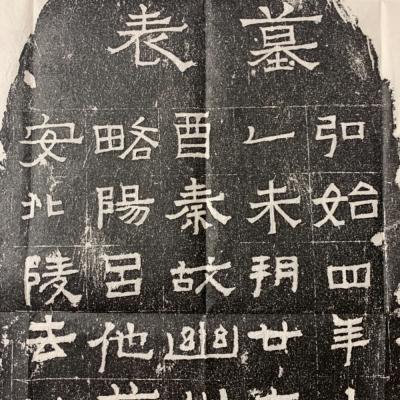 墓表
弘始四年
乙未朔廿
酉秦故幽
略陽呂他
安北陵去